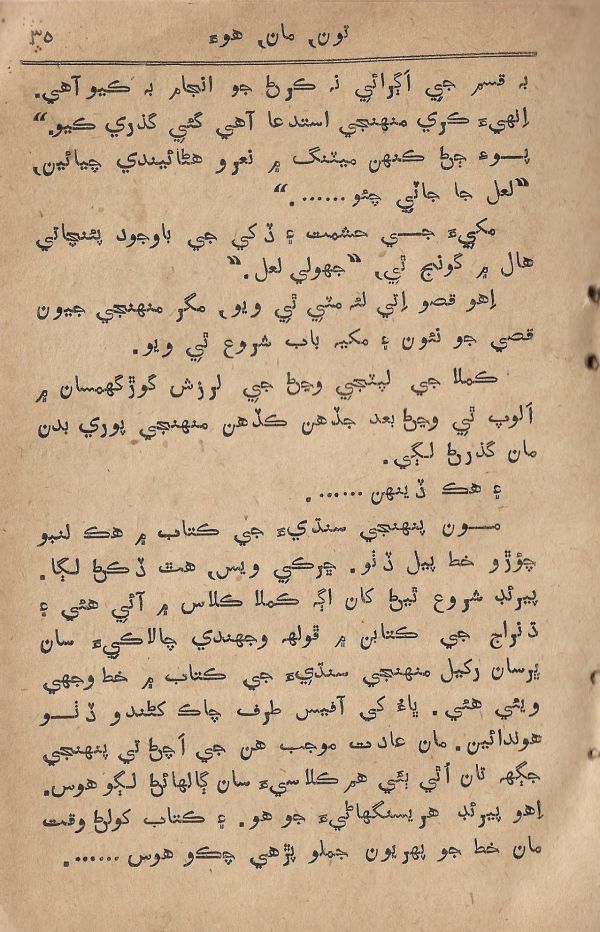 تون, مان, هوءَ ۳۵
بہ قسم جي اَڳرائي نہ ڪرڻ جو انجام بہ ڪيو آهي.
اِنهيءَ ڪري منهنجي استدعا آهي گئي گذري ڪيو.“
پــوءِ ڄڻ ڪنهن ميٽنگ ۾ نعرو هڻائيندي چيائين,
“لعل جا جاتي چئو.......“
مکيءَ جــي حشمت ۽ ڏکي جي باوجود پئنچاتي
هال ۾ گونج ٿي, “جهولي لعل.“
اِهو قصو اِتي لٽہ مٽي ٿي ويو, مگر منهنجي جيون
قصي جو نئون ۽ مکيہ باب شروع ٿي ويو.
ڪملا جي لپٽجي وڃڻ جي لرزش گوڙگهمسان ۾
اَلوپ ٿي وڃڻ بعد جڏهن ڪڏهن منهنجي پوري بدن
مان گذرڻ لڳي.
۽ هڪ ڏينهن.......
مــون پنهنجي سنڌيءَ جي ڪتاب ۾ هڪ لنبو
چئوڙو خط پيل ڏٺو. ڇرڪي ويس, هٿ ڏڪڻ لڳا.
پيرئڊ شروع ٿيڻ کان اڳہ ڪملا ڪلاس ۾ آئي هئي ۽
ڌنراج جي ڪتابن ۾ ڦولهہ وجهندي چالاڪيءَ سان
ڀرسان رکيل منهنجي سنڌيءَ جي ڪتاب ۾ خط وجهي
ويئي هئي. ڀاءُ کي آفيس طرف چاڪ کڻندو ڏٺــو
هوندائين. مان عادت موجب هن جي اَچڻ تي پنهنجي
جڳهہ تان اُٿي ٻئي هم ڪلاسيءَ سان ڳالهائڻ لڳو هوس.
اِهو پيرئڊ هريسنگهاڻيءَ جو هو. ۽ ڪتاب کولڻ وقت
مان خط جو پهريون جملو پڙهي چڪو هوس.......